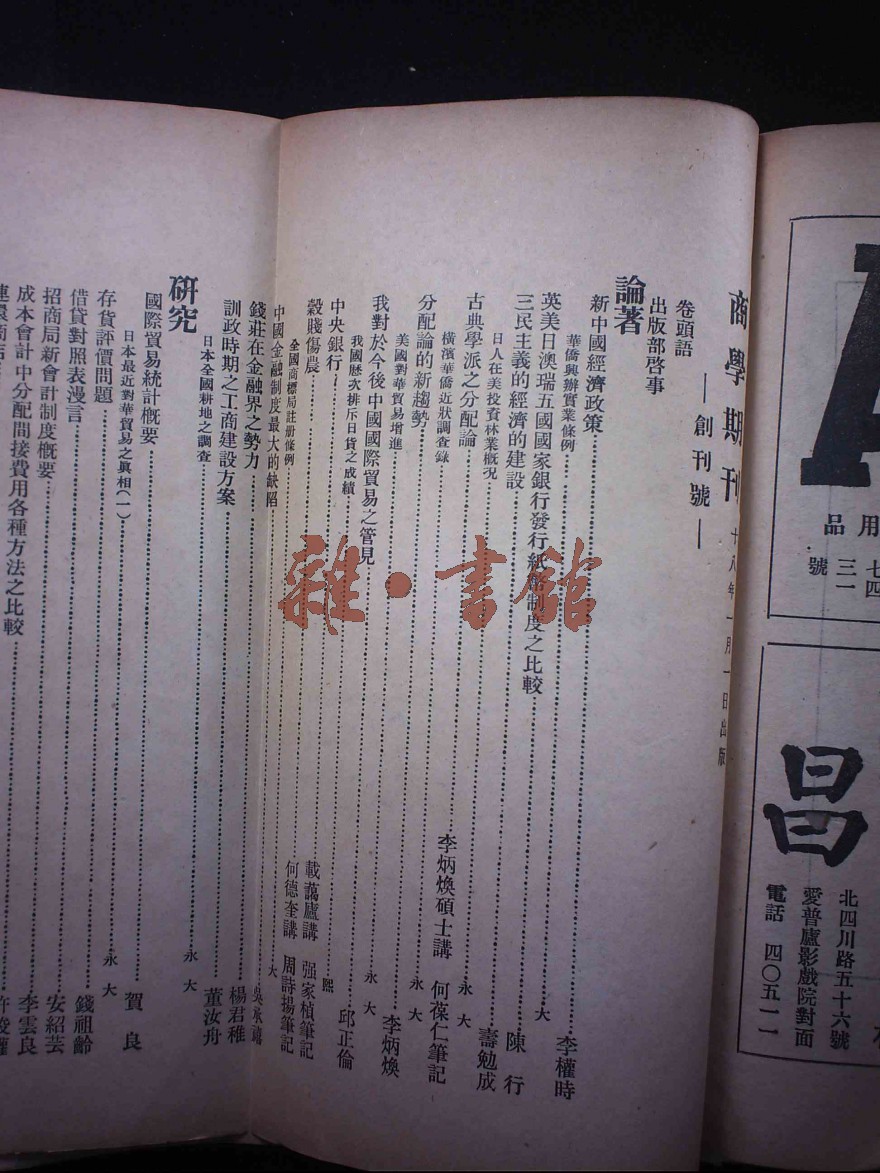 商學期刊 十八年一月一日出版
—創刊號—
卷頭語
出版部啓事
論著
新中國經濟政策 李權時
華僑興辦實業條例 大
英美日澳瑞五國國家銀行發行紙幣制度之比較 陳行
三民主義的經濟的建設 壽勉成
日人在美投資林業概況 永大
古典學派之分配論 李炳煥碩士講 何葆仁筆記
橫濱華僑近狀調查錄 永大
分配論的新趨勢 李炳煥
美國對華貿易增進 永大
我對於今後中國國際貿易之管見 邱正倫
我國歷次排斥日貨之成績
中央銀行 載藹廬講 强家楨筆記
穀賤傷農 何德奎講 周詩揚筆記
全國商標局註册條例 大
中國金融制度最大的缺陷 吳承禧
錢莊在金融界之勢力 楊君稚
訓政時期之工商建設方案 董汝舟
日本全國耕地之調查 永大
研究
國際貿易統計概要 賀良
日本最近對華貿易之眞相(一) 永大
存貨評價問題 錢祖齡
借貸對照表漫言 安紹芸
招商局新會計制度概要 李雲良
成本會計中分配間接費用各種方法之比較
雜·書館
A
用品
號
昌
北四川路五十六號
愛普廬影戲院對面
電話 四〇五一一